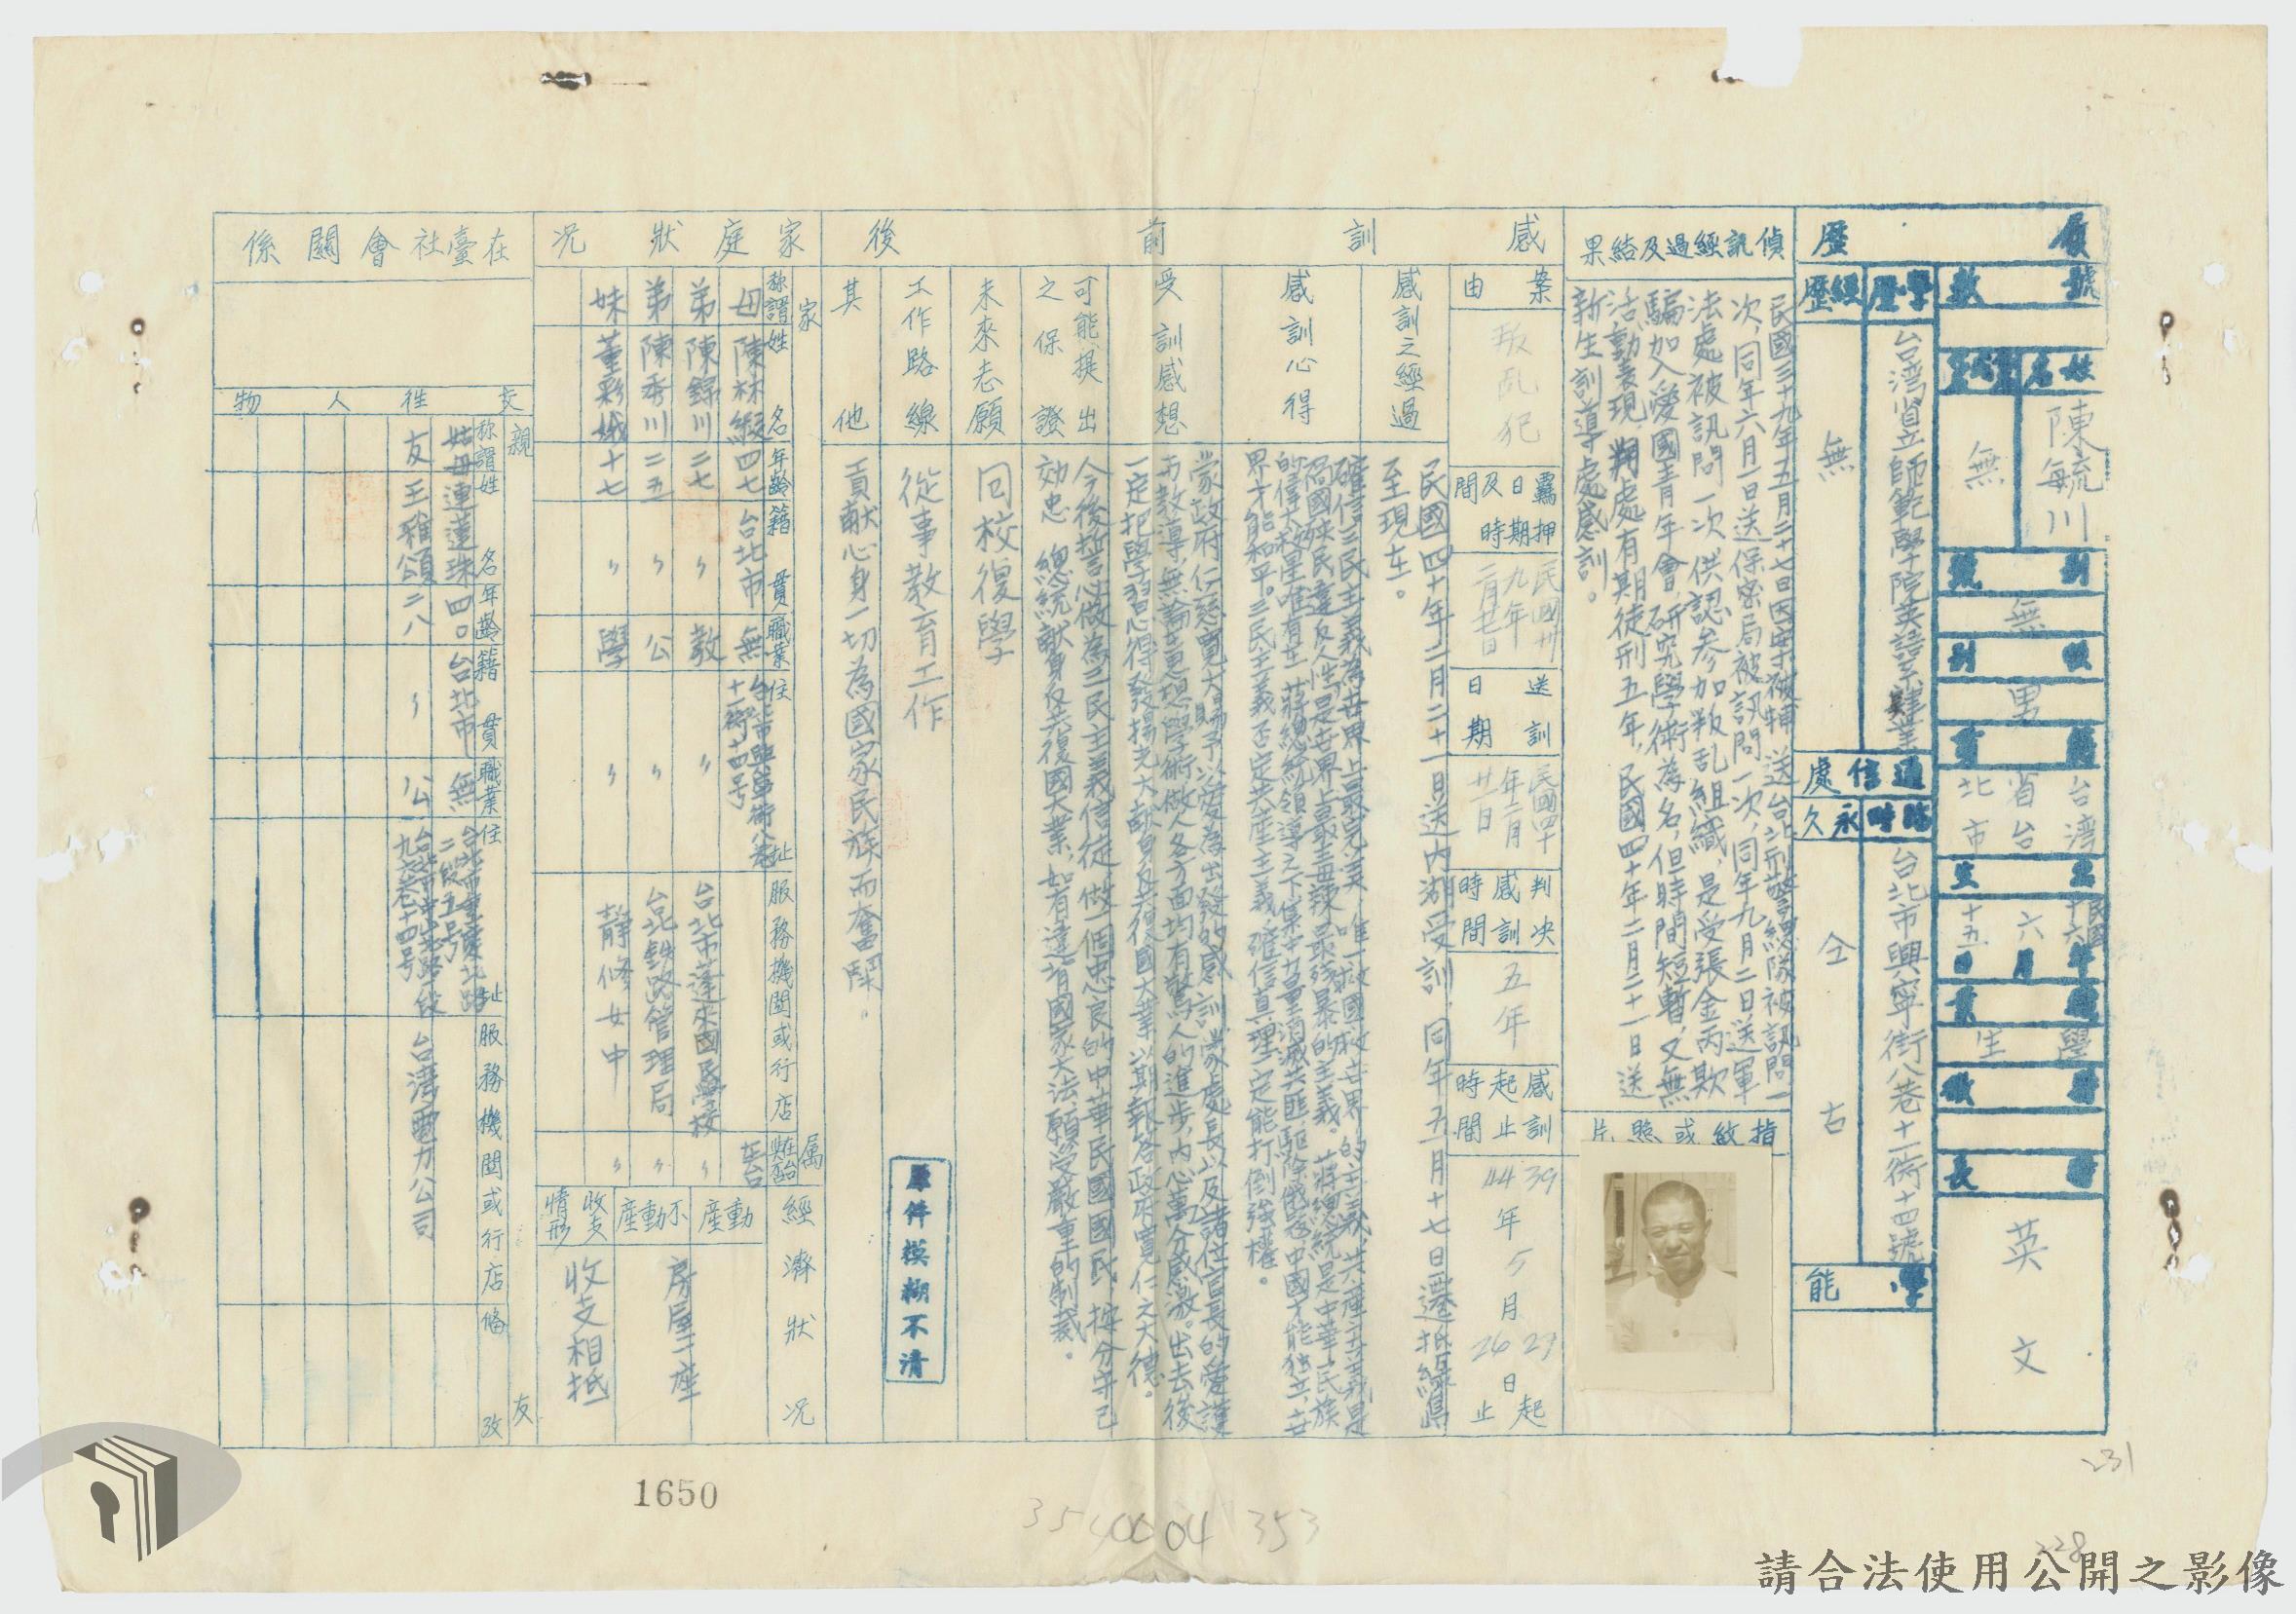 履歷
號數
姓名
陳毓川
化名
無
別號
無
性別
男
籍貫
台灣省台北市
出生
民國十六年六月十五日
職業
學生
特長
英文
學歷
台灣省立師範學院英語系肄業
經歷
無
通信處
臨時
台北市興寧街八巷十一衖十四號
永久
仝右
學能
偵訊經過及結果
民國三十九年五月二十七日因案被輔送台北刑警總隊被訊問一
次,同年六月一日送保密局被訊問一次,同年九月二日送軍
法處被訊問一次供認參加叛乱組織,是受張金丙欺
騙加入愛國青年會,研究學術為名,但時間短暫,又無
活動表現,判處有期徒刑五年,民國四十年二月二十一日送
新生訓導處感訓。
指紋或照片
感訓前後
案由
叛乱犯
羈押日期及時間
民國卅九年
送訓日期
民國四十年二月廿一日
判決感訓時間
五年
感訓起止時間
39 44年5月27 26日起止
感訓之經過
民國四十年二月二十一日送內湖受訓,同年五月十七日遷抵綠島
至現在。
感訓心得
確信三民主義為世界上最完美,唯一救國救世界的主義,共產主義是
禍國殃民違反人性,是世界上最毒辣最殘暴的主義。蔣總統是中華民族
的偉大救星唯有在 蔣總統領導之下集中力量消滅共匪,驅除俄寇,中國才能独立,世
界才能和平。三民主義否定共產主義,確信真理一定能打倒強權。
受訓感想
蒙政府仁慈寬大賜予以愛為出發的感訓蒙處長以及諸位官長的愛護
与教導,無論在思想學術做人各方面均有驚人的進步,内心萬分感激。出去後
一定把學習心得發揚光大献身反共復國大業以期報答政府寬仁之大德。
可能提出之保證
今後誓必做為三民主義信徒,做一個忠良的中華民國國民,按分守己
効忠 總統献身反共復國大業,如有違背國家大法,願受嚴重的制裁。
未來志願
回校復學
工作路線
從事教育工作
其他
貢献心身一切為國家民族而奮鬪。
原件模糊不清
家庭狀況
家屬
称謂 姓名 年齡 籍貫 職業 住址 服務機關或行店
母 陳林緞 四七 台北市 無 台北市興寧街八巷十一衖十四号 在台
弟 陳錦川 二七 〃 教 〃 台北市蓬來國民學校 〃
弟 陳秀川 二五 〃 公 〃 台北鉄路管理局 〃
妹 董彩娥 十七 〃 學 〃 靜修女中 〃
經濟狀况
動產
不動產
房屋二座
收支情形
收支相抵
在臺社會關係
交往人物
親友
称謂 姓名 年齡 籍貫 職業 住址 服務機關或行店 備攷
姑母 連蓮珠 四〇 台北市 無
友 王雅頌 二八 〃 公 台灣電力公司
1650
353
231
228
請合法使用公開之影像